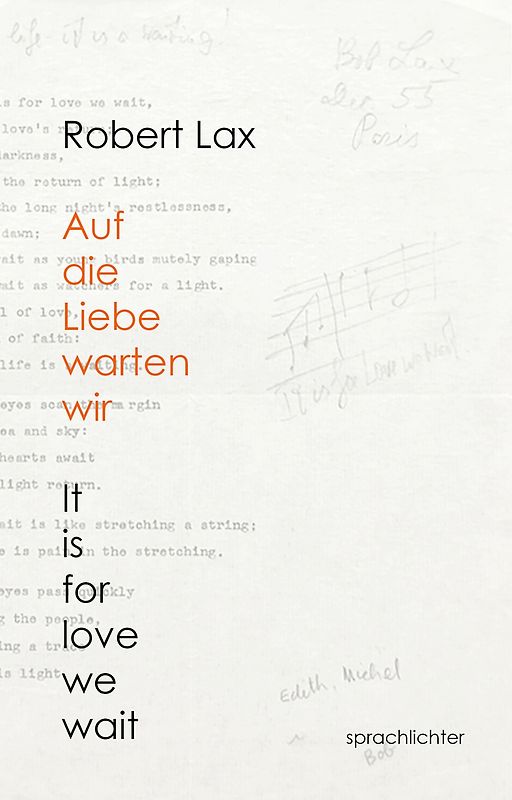 life - it is a waiting!
Bob Lax
Paris
is for love we wait,
love's
Robert Lax
darkness,
the return of light;
the long night's restlessness,
dawn;
Auf
wait as young birds mutely gaping
die
wait as watchers for a light.
l of love,
Liebe
of faith:
warten
life is a waiting.
It is for Love we wait
eyes scan the margin
wir
sea and sky:
hearts await
light return.
It
wait is like stretching a string;
is
e is pain in the stretching.
for
eyes pass quickly
g the people,
love
ing a
is light
we
Edith, Michel
wait
sprachlichter
Bob